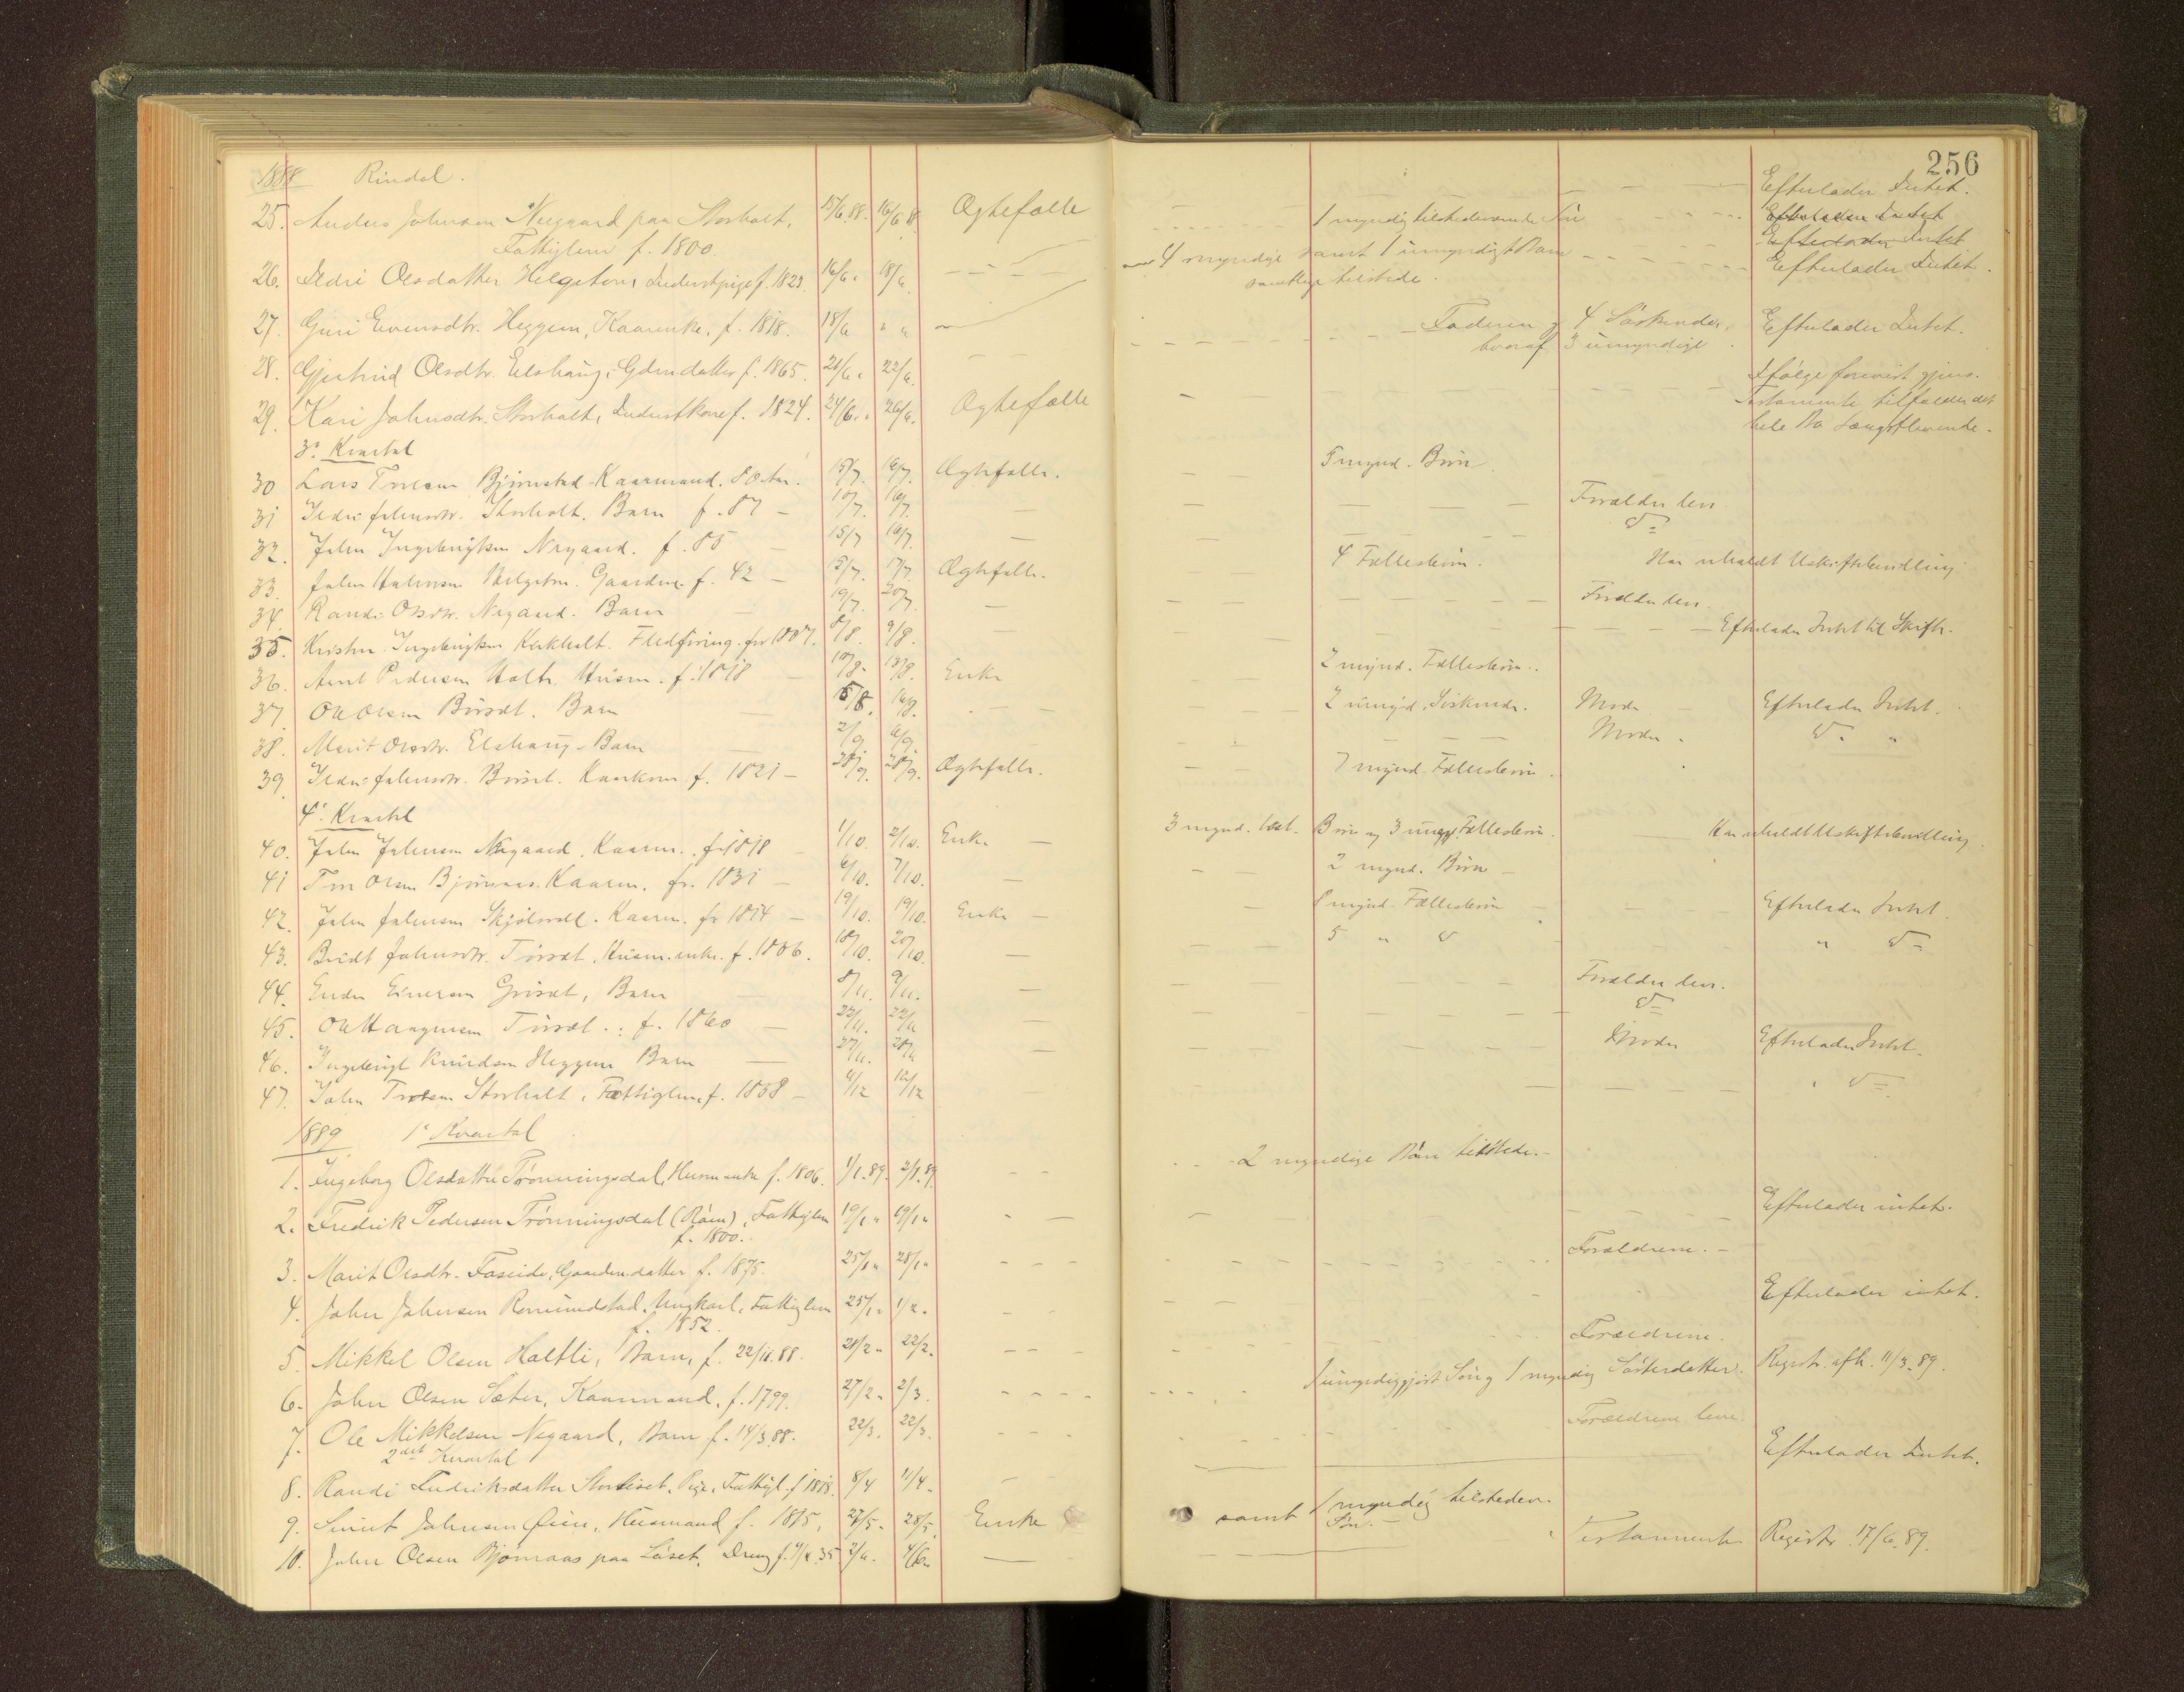 256
1888 Rindal.
Efterlader Intet.
25. Anders Johnsen Negaard paa Storholt, 15/6 88. 16/6 88 Ægtefælle 1 myndig tilstedeværende Søn Efterlader Intet
Fattiglem f. 1800. Efterlader Intet
26. Sidri Olsdatter Helgetun, Inderstpige f. 1823. 16/6. 18/6 4 myndige samt 1 umyndigt Barn Efterlader Intet.
samtlige tilstede.
27. Guri Evensdtr. Heggem, Kaarenke, f. 1818. 18/6 " " Faderen og 4 Søskende, Efterlader Intet.
hvoraf 3 umyndige.
28. Gjertrud Olsdtr. Elshaug, Gdm.datter f. 1865. 20/6. 22/6. Ifølge forevist gjens.
29. Kari Johnsdtr. Storholt, Inderstkone f. 1824. 24/6. 26/6. Ægtefælle Testamente tilfalder det
hele Bo Længstlevende.
3. Kvartal
30 Lars Bjørnstad Kaarmand. 80 Aar. 15/7. 16/7. Ægtefælle. 5 mynd. Børn.
31 Sidri Johnsdtr. Storholt. Barn f. 87 10/7. 16/7. Forældre leve
32. John Ingebrigtsen Negaard. f. 85 15/7 16/7. D=
33. John Halvorsen Helgetun. Gaardm. f. 42 5/7. 17/7. Ægtefælle. 4 Fællesbørn. Har uholdt Uskiftebevilling
34. Randi Olsdtr. Negaard. Barn 19/7. 20/7. Forældre leve.
35. Kristen Ingebrigtsen Kirkholt. Flødføring. før 1807. 8/8. 9/8. Efterlader Intet til Skifte.
36. Arnt Pedersen Holte Husm. f. 1818 10/8. 13/8. Enke 2 mynd. Fællesbørn.
37. Ole Olsen Børset. Barn 15/8. 16/8. 2 umynd. Søskende. Moder Efterlader Intet.
38. Marit Olsdtr. Elshaug. Barn 2/9. 6/9. Moder. D. "
39. Sidri Johnsdtr. Børset. Kaarkone f. 1821 28/9. Ægtefælle. 7 mynd. Fællesbørn.
4. Kvartal
40. John Johnsen Negaard. Kaarm. f. 1818 1/10. 2/10. Enke 3 mynd. Børn og 3 Fællesbørn. Har uholdt Uskiftebevilling.
41 Tore Olsen Bjørnaas. Kaarm. f. 1831 6/10. 7/10. 2 mynd. Børn
42. John Johnsen Kaarm. f. 1814 19/10. 19/10. Enke 8 mynd. Fællesbørn Efterlader Intet.
43. Bridt Johnsdtr. Tørset. Husm.enke. f. 1806. 18/10. 20/10. 5 " D " D=
44. Endre Einersen Grøset, Barn 8/11. 9/11. Forældre leve.
45. Ole Haagensen Tørset. f. 1860 22/11. 22/11 D=
46. Ingebrigt Knudsen Heggem Barn 27/11. 28/11 Moder Efterlader Intet.
47. John Storholt, Fattiglem f. 1858 4/12 12/12 " D=
1889 1. Kvartal
1. Ingeborg Olsdatter Trønningsdal, Husm.enke f. 1806. 1/1.89. 2/1.89. 2 myndige Børn tilstede.
2. Fredrik Pedersen Trønningsdal (Røen), Fattiglem 19/1 " 19/1 " Efterlader intet.
f. 1800.
3. Marit Olsdtr. Foseide, Gaardm.datter f. 1875. 25/1 " 28/1 " Forældrene.
4. John Johnsen Romundstad, Ungkarl, Fattiglem 25/1. 1/2. Efterlader intet.
f. 1852.
5. Mikkel Olsen Holtli, Barn, f. 22/11.88. 21/2. 22/2. Forældrene.
6. John Olsen Sæter, Kaarmand, f. 1799. 27/2. 2/3. 1 umyndiggjort Søn og 1 myndig Søsterdatter. Registr. afh. 11/3.89.
7. Ole Mikkelsen Negaard, Barn f. 14/3.88. 22/3. 22/3. Forældrene leve.
2det Kvartal
8. Randi Fredriksdatter Pige, Fattigl. f. 1818. 8/4 11/4. Efterlader Intet.
9. Sivert Johnsen Øien, Husmand f. 1815, 27/5. 28/5. Enke samt 1 myndig tilstedev.
Søn.
10. John Olsen Bjørnaas paa Løset, Dreng f. 35 2/6. 4/6. Testamente Registr. 17/6.89.